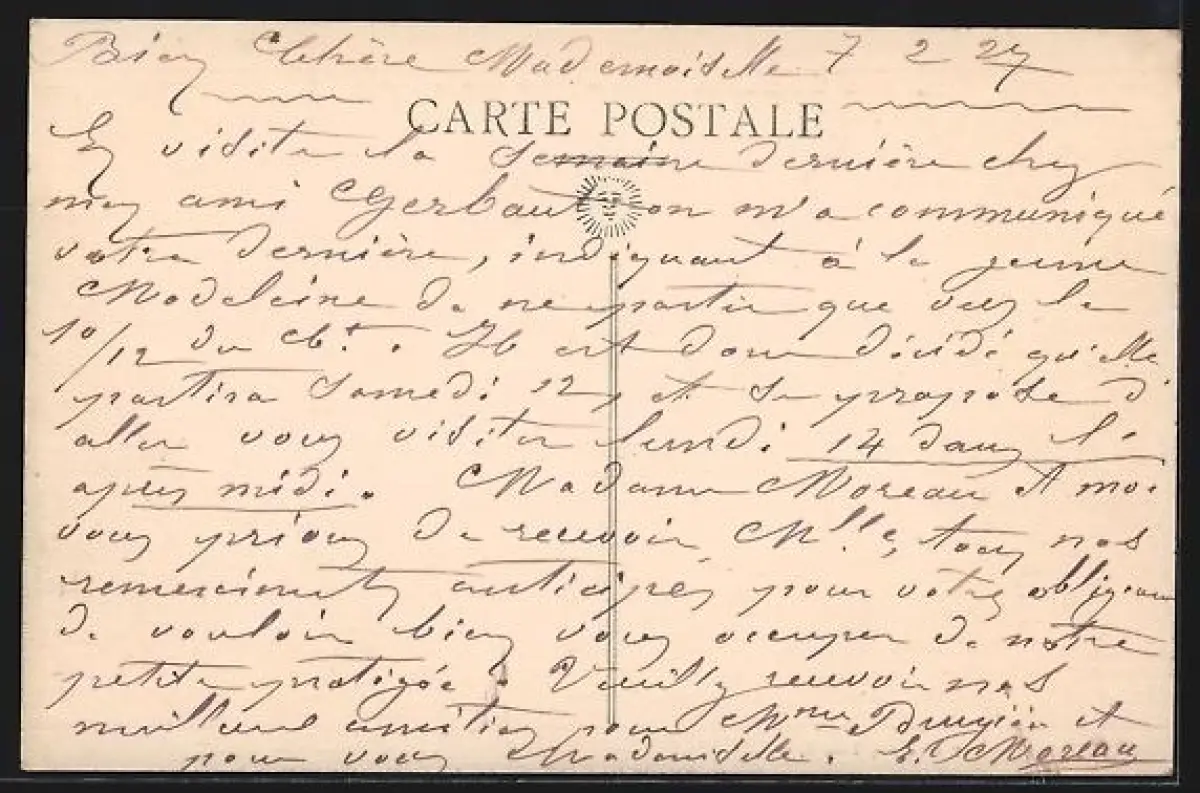 Bien Chère Mademoiselle 7 2 27
CARTE POSTALE
En visite la semaine dernière chez
mon ami Gerbaut on m'a communiqué
votre dernière, indiquant à la jeune
Madeleine de ne partir que vers le
10/12 du Ct. Il est donc décidé qu'elle
partira Samedi 12, et se propose d'
aller vous visiter lundi 14 dans l'
après midi. Madame Moreau et moi
vous prions de recevoir Mlle, tous nos
remerciments anticipés pour votre
de vouloir bien vous occuper de notre
petite protégée. Veuillez recevoir nos
meilleures amitiés pour Mme et
pour vous Mademoiselle. E. Moreau